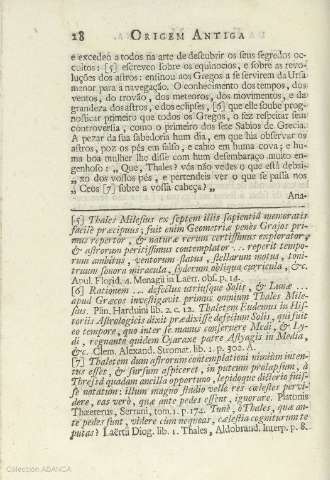 28 ORIGEM ANTIGA
e excedeo a todos na arte de descubrir os seus segredos oc-
cultos: [5] escreveo sobre os equinocios, e sobre as revo-
luções dos astros: ensinou aos Gregos a se servirem da Ursa
menor para a navegação. O conhecimento dos tempos, dos
ventos, do trovão, dos meteoros, dos movimentos, e da
grandeza dos astros, e dos eclipses, [6] que elle soube prog-
nosticar primeiro que todos os Gregos, o fez respeitar sem
controversia, como o primeiro dos sete Sabios de Grecia.
A pezar da sua sabedoria hum dia, em que hia observar os
astros, poz os pés em falso, e cahio em huma cova; e hu-
ma boa mulher lhe disse com hum desembaraço muito en-
genhoso: „ Que, Thales? vós não vedes o que está debai-
„ xo dos vossos pés, e pertendeis ver o que se passa nos
„ Ceos [7] sobre a vossa cabeça? „
Ana-
[5] Thales Milesius ex septem illis sapientiâ memoratis
facilè præcipuus; fuit enim Geometriæ penès Grajos pri-
mus repertor, & naturæ rerum certissimus explorator,
& astrorum peritissimus contemplator .. reperit tempo-
rum ambitus, ventorum flatus, stellarum motus, toni-
truum sonora miracula, syderum obliqua curricula, &c.
Apul. Florid. a. Menagii in Laërt. obs. p. 14.
[6] Rationem ... defectus utriusque Solis, & Lunæ ...
apud Græcos investigavit primus omnium Thales Mile-
sius. Plin. Harduini lib. 2. c. 12. Thaletem Eudemus in His-
toriis Astrologicis dixit prædixisse defectum Solis, qui fuit
eo tempore, quo inter se manus conseruere Medi, & Ly-
di, regnante quidem Cyaxare patre Astyagis in Media,
&c. Clem. Alexand. Stromat. lib. 1. p. 302. A.
[7] Thaletem dum astrorum contemplationi nimiùm inten-
tus esset, & sursum aspiceret, in puteum prolapsum, à
Thressâ quadam ancilla opportuno, lepidoque dicterio fuis-
se notatum: illum magno studio velle res cælestes pervi-
dere, eas verò, quæ ante pedes essent, ignorare. Platonis
Thæetetus, Serrani, tom. 1. p. 174. Tunè, ò Thales, quæ an-
te pedes sunt, videre cùm nequeas, cælestia cogniturum te
putas? Laërtii Diog. lib. 1. Thales, Aldobrand. Interp. p. 8.
Colección ABANCA